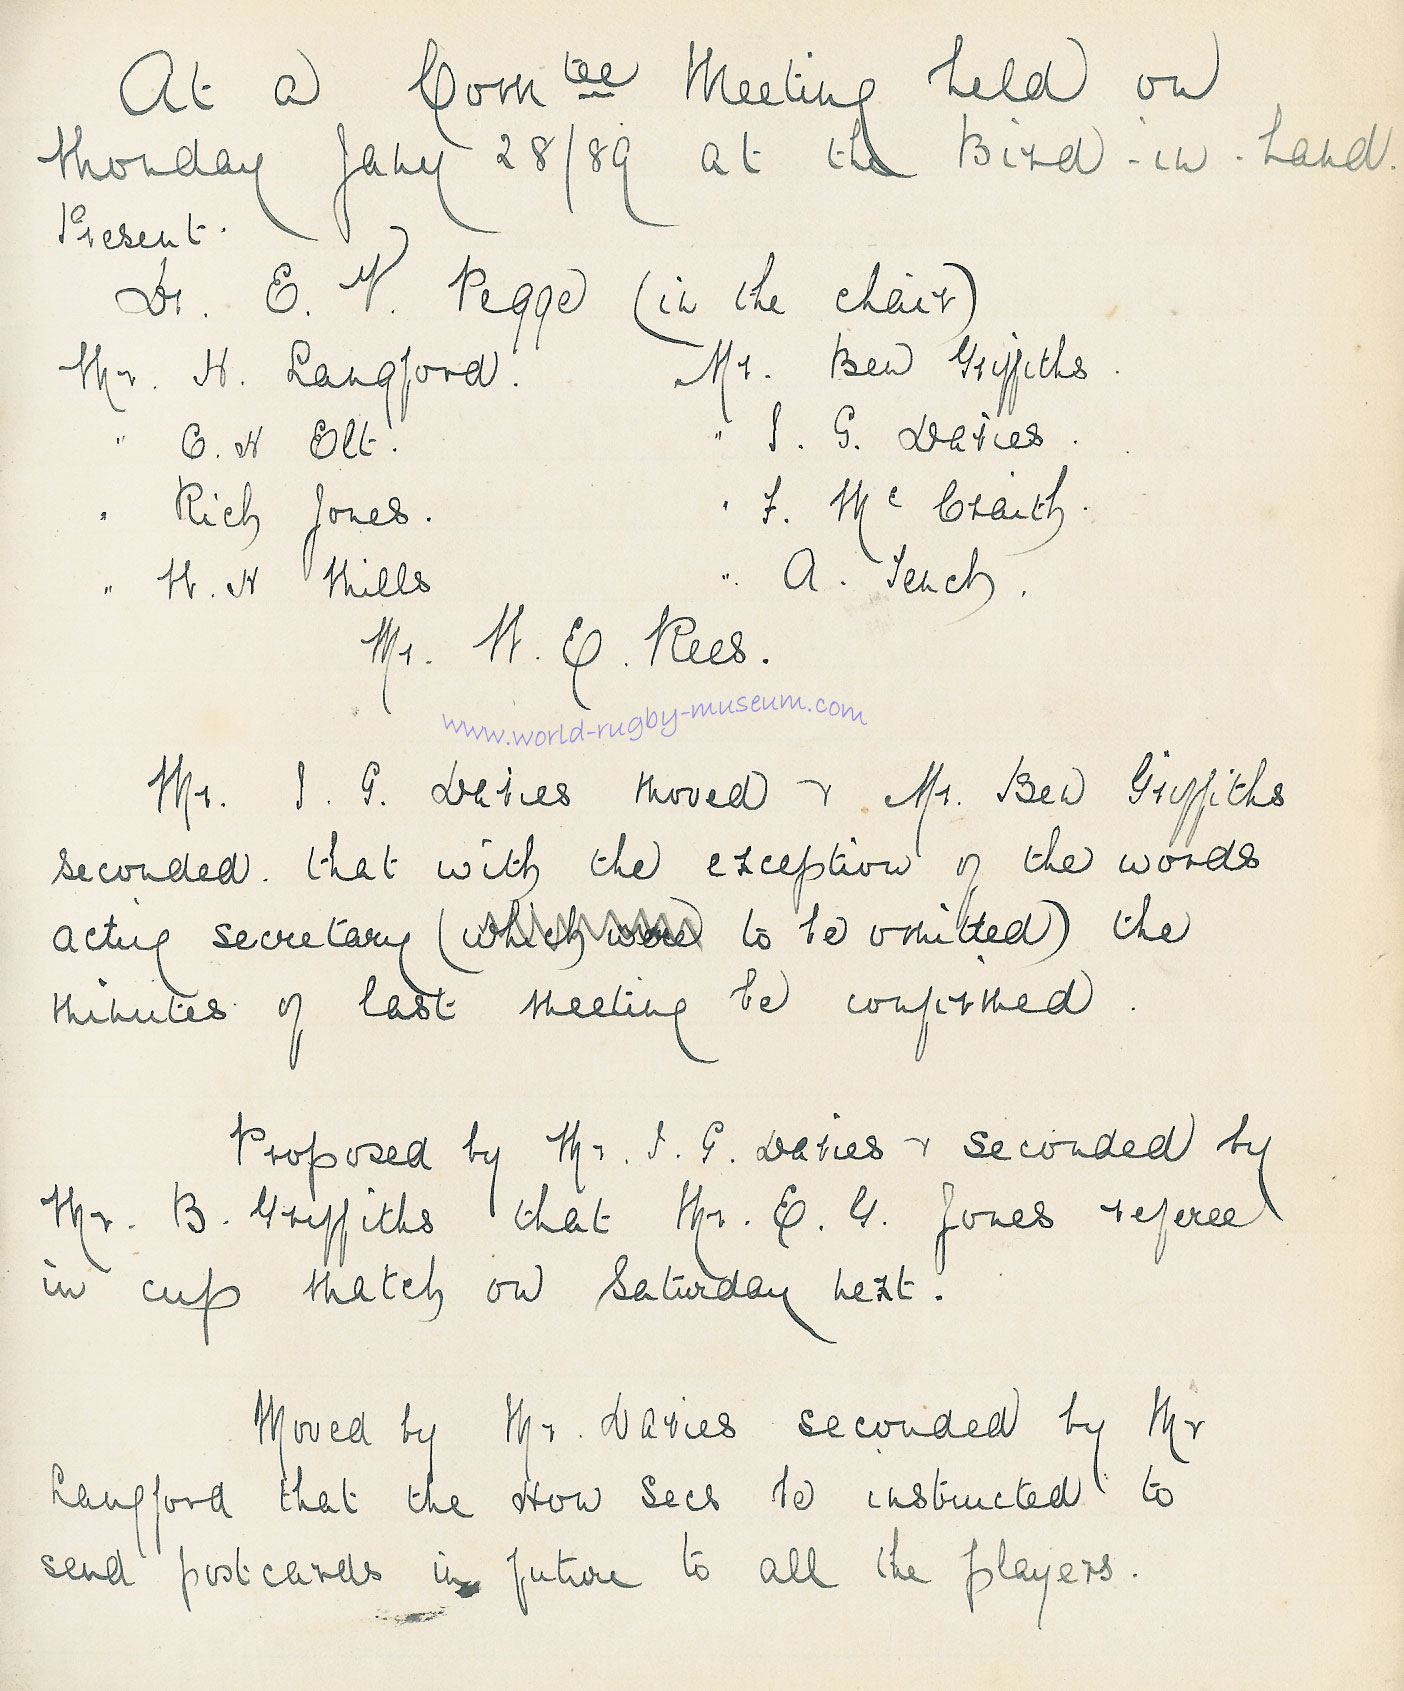 At a Com tee Meeting held on
Monday Jany 28/89 at the Bird-in-Hand.
Present.
Dr. E. V. Pegge (in the chair)
Mr. H. Langford. Mr. Ben Griffiths.
" C. H Elt. " I. G. Davies.
" Rich Jones. " F. Mc Craith.
" W. H Mills ". A. Tench.
Mr. W. E. Rees.
www.world-rugby-museum.com
Mr. I. G. Davies moved & Mr. Ben Griffiths
seconded. that with the exception of the words
acting secretary (which were to be omitted) the
minutes of last meeting be confirmed.
Proposed by Mr. I. G. Davies & seconded by
Mr. B. Griffiths that Mr. E. G. Jones referee
in cup match on Saturday next.
Moved by Mr. Davies seconded by Mr
Langford that the Hon Secs be instructed to
send postcards in future to all the players.